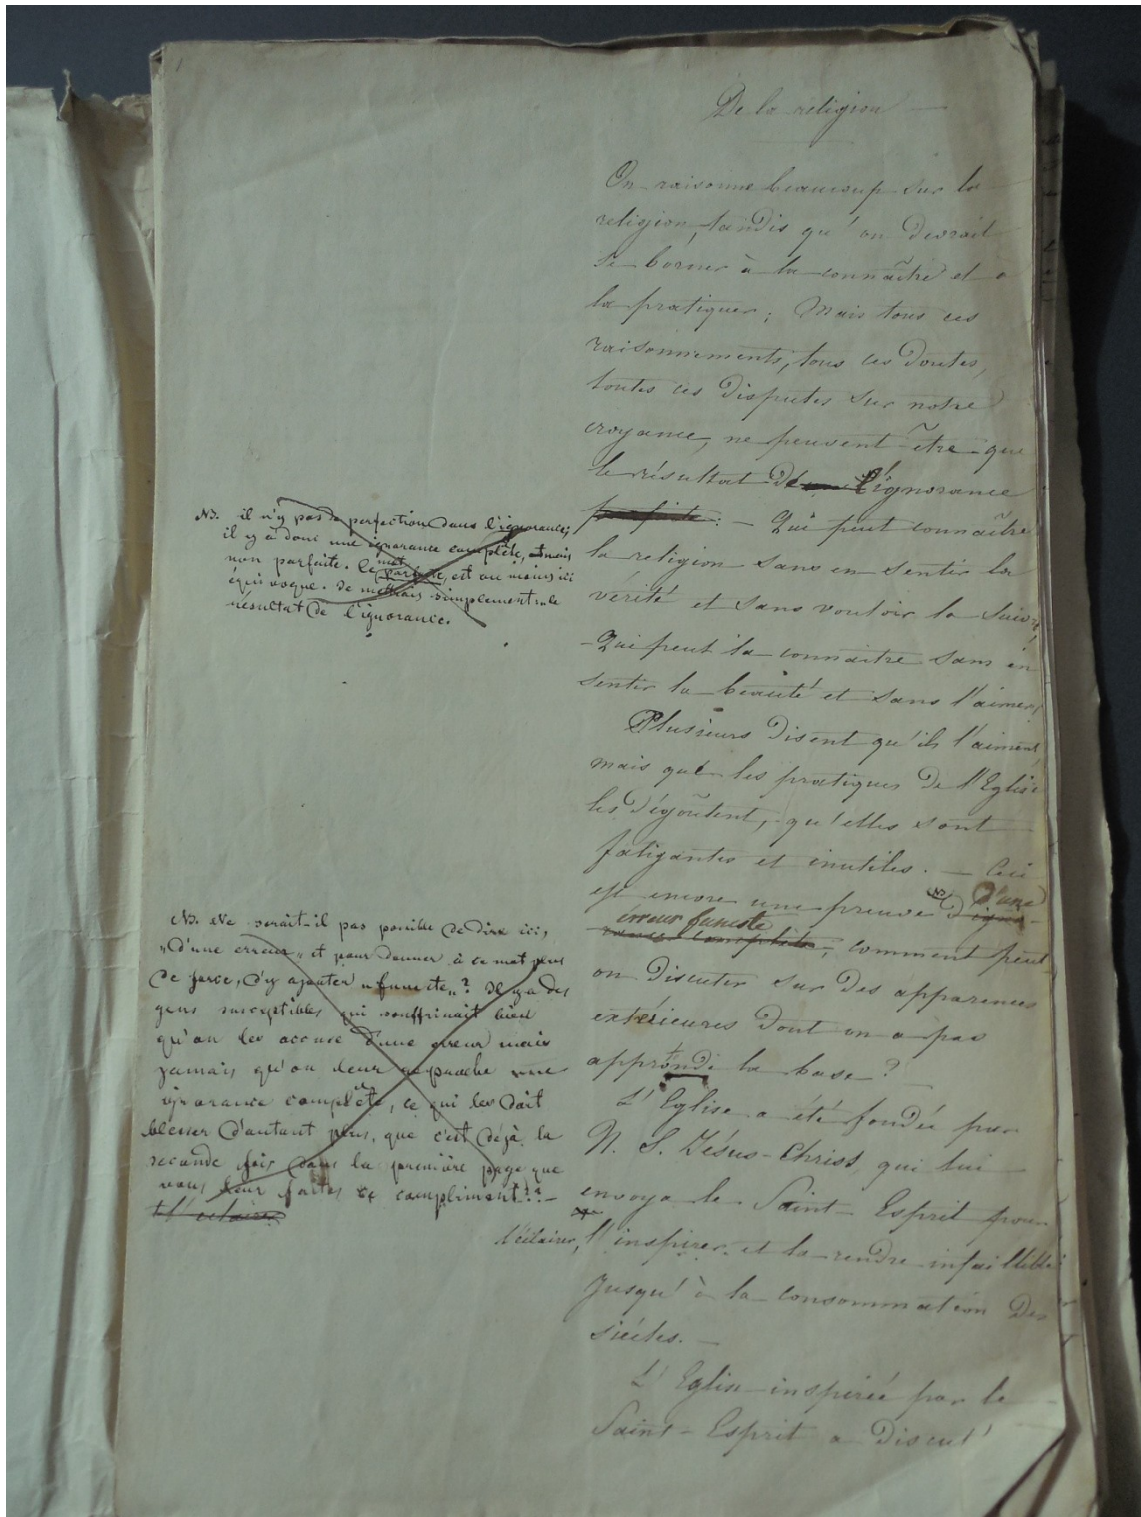 De la religion —
On raisonne beaucoup sur la
religion, tandis qu'on devrait
se borner à la connaître et à
la pratiquer; Mais tous ces
raisonnements, tous ces doutes,
toutes ces disputes sur notre
croyance, ne peuvent être que
le résultat de l'ignorance
parfaite: — Qui peut connaître
la religion sans en sentir la
vérité et sans vouloir la suivre!
— Qui peut la connaitre sans en
sentir la beauté et sans l'aimer!
Plusieurs disent qu'ils l'aiment,
mais que les pratiques de l'Eglise
les dégoûtent, qu'elles sont
fatigantes et inutiles. — Ceci
est encore une preuve (NB) d'une igno-
erreur funeste
rance complète; comment peut
on discuter sur des apparences
extérieures dont on a pas
approfondi la base?
L'Eglise a été fondée par
N. S. Jésus-Christ, qui lui
envoya le Saint-Esprit pour
l'éclairer, l'inspirer et la rendre infaillible
jusqu'à la consommation des
siècles. —
L'Eglise inspirée par le
Saint-Esprit a discuté
NB. il n'y pas de perfection dans l'ignorance;
il y a donc une ignorance complète, mais
non parfaite. Ce mot parfaite, est au moins ici
équivoque. Je mettrais simplement: le
résultat de l'ignorance.
NB. Ne serait-il pas possible de dire ici,
„d'une erreur„ et pour donner à ce mot plus
de force, d'y ajouter „funeste„? Il y a des
gens susceptibles qui souffrirait bien
qu'on les accuse d'une erreur mais
jamais qu'on leur reproche une
ignorance complète, ce qui les doit
blesser d'autant plus, que c'est déjà la
seconde fois dans la première page que
vous leur faites ce compliment?? —
l'éclairer